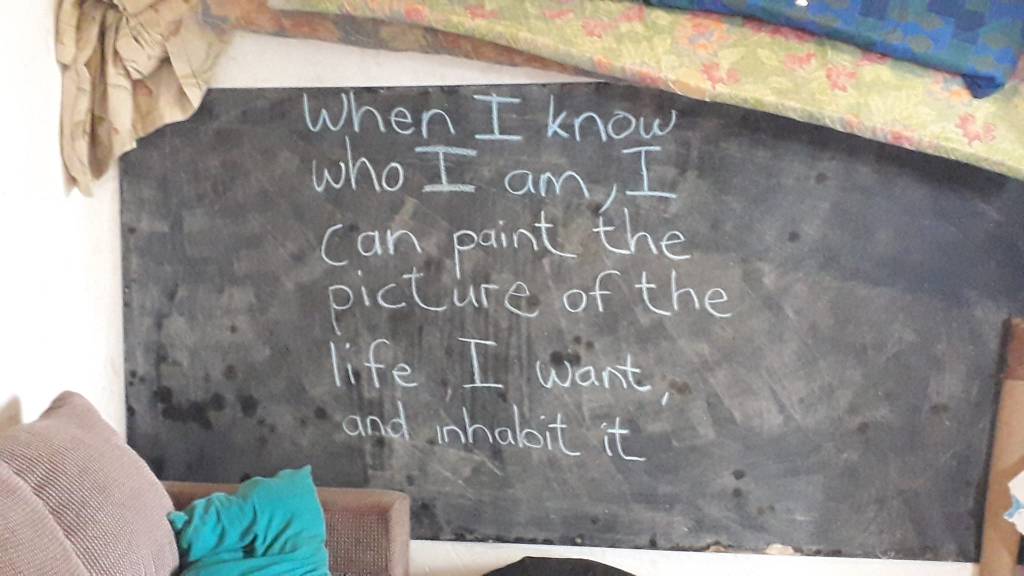 When I know
who I am, I
can paint the
picture of the
life I want,
and inhabit it